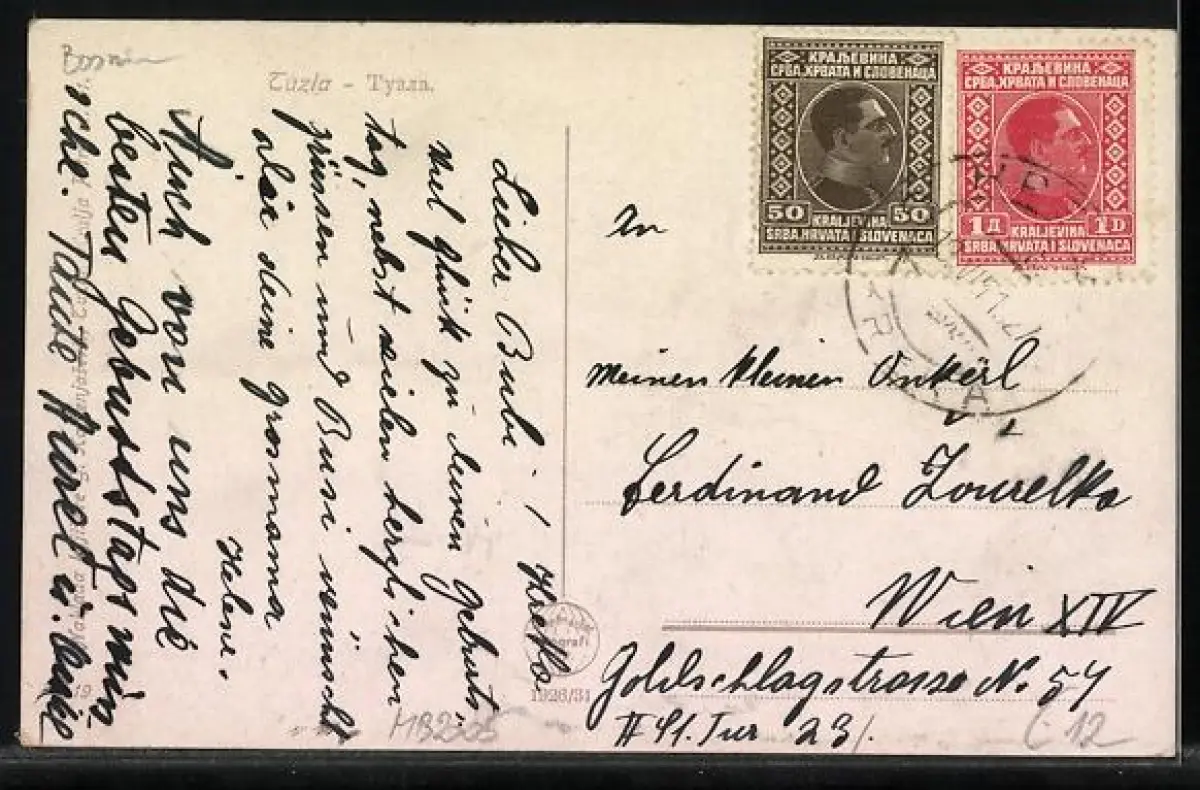 Bosnien
Tuzla – Тузла.
КРАЉЕВИНА
СРБА, ХРВАТА И СЛОВЕНАЦА
50 50
KRALJEVINA
SRBA, HRVATA I SLOVENACA
КРАЉЕВИНА
СРБА, ХРВАТА И СЛОВЕНАЦА
1Д 1D
KRALJEVINA
SRBA, HRVATA I SLOVENACA
Lieber Bubi!
viel glük zu deinen Geburts,
tag, nebst vielen herzlichen
grüssen und Busi wünscht
dir deine grosmama
Helene.
Auch von uns die
besten Geburtstagswün
sche. Tante
1926/31
An
meinen kleinen Onkerl
Ferdinand
Wien XIV
Goldschlagstrasse No. 57
II St. Tür 23/.
MB2505
C 12